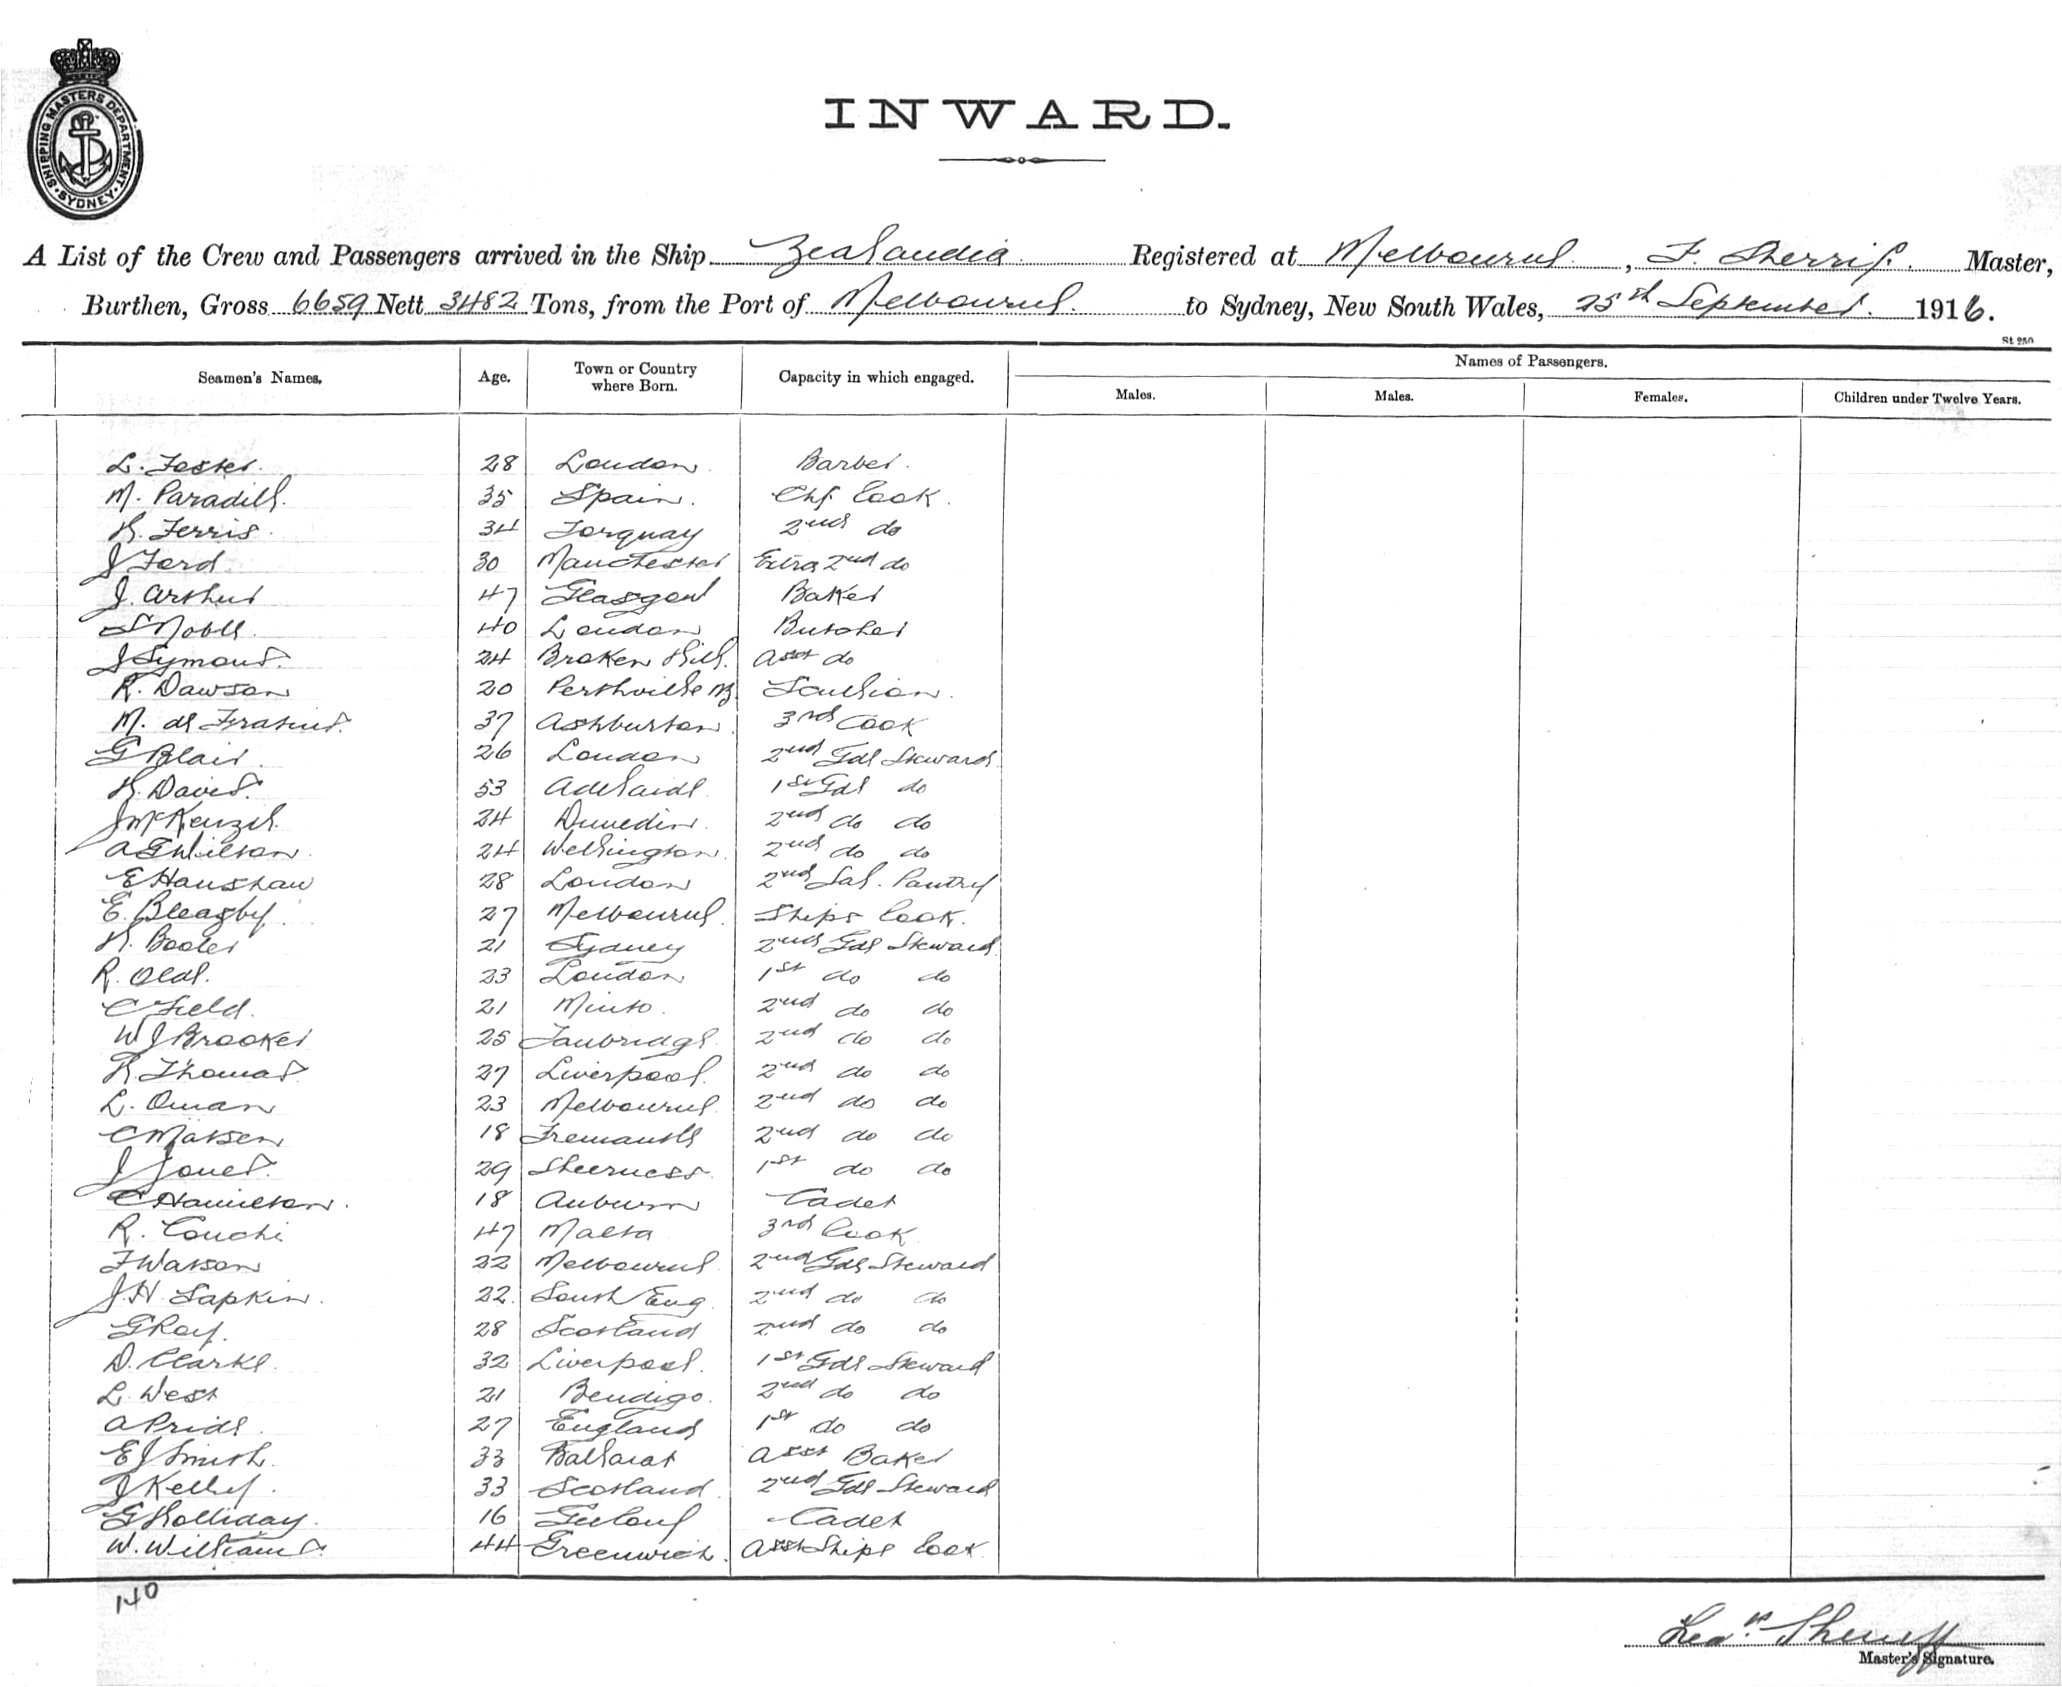 SHIPPING MASTERS DEPARTMENT. SYDNEY
INWARD.
A List of the Crew and Passengers arrived in the Ship Zealandia Registered at Melbourne, F. Sherriff. Master,
Burthen, Gross 6659 Nett 3482 Tons, from the Port of Melbourne. to Sydney, New South Wales, 25th September. 1916.
St 250
Seamen's Names. Age. Town or Country where Born. Capacity in which engaged. Names of Passengers.
Males. Males. Females. Children under Twelve Years.
L. Foster. 28 London. Barber.
M. 35 Spain. Chf. Cook.
H. Ferris. 34 Torquay 2nd do
J Ford 30 Manchester Extra 2nd do
J. Arthur 47 Glasgow Baker
S Noble. 40 London Butcher
J Symons. 24 Broken Hill. Asst do
R. Dawson 20 Perthville Scullion.
M. de 37 Ashburton. 3rd Cook
G Blair. 26 London 2nd Gde Steward.
H. Davis. 53 Adelaide. 1st Gde do
J McKenzie. 24 Dunedin. 2nd do do
A G Wilson. 24 Wellington. 2nd do do
E Hanshaw 28 London 2nd Sal. Pantry
E. Bleazby. 27 Melbourne. Ships Cook.
H. 21 Sydney 2nd Gde Steward
R. Olde. 23 London 1st do do
C Field. 21 Minto. 2nd do do
W J Brooker 25 Tonbridge. 2nd do do
H. Thomas. 27 Liverpool. 2nd do do
L. Oman 23 Melbourne. 2nd do do
C Matsen 18 Fremantle 2nd do do
J Jones. 29 Sheerness. 1st do do
C Hamilton. 18 Auburn Cadet
R. Conchi 47 Malta 3rd Cook
F Watson 22 Melbourne 2nd Gde Steward
J. H. 22. South Eng. 2nd do do
G Roy. 28 Scotland 2nd do do
D. Clarke. 32 Liverpool. 1st Gde Steward
L. West 21 Bendigo. 2nd do do
A Pride. 27 England 1st do do
E J Smith. 33 Ballarat Asst Baker
J Kelly. 33 Scotland. 2nd Gde Steward
G Holliday. 16 Geelong Cadet
W. Williams. 44 Greenwich. Asst Ships Cook.
140
Sherriff
Master's Signature.